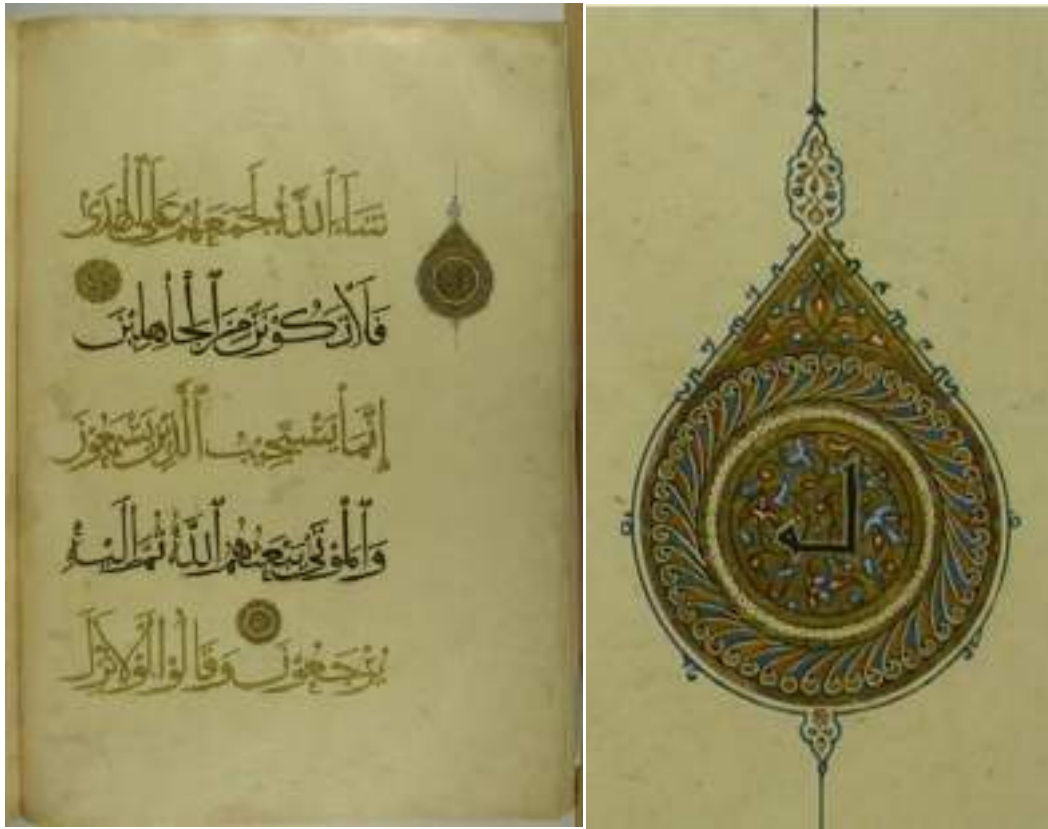 شَاءَ اللَّهُ لَجَمَعَهُمْ عَلَى الْهُدَى
فَلَا تَكُونَنَّ مِنَ الْجَاهِلِينَ
إِنَّمَا يَسْتَجِيبُ الَّذِينَ يَسْمَعُونَ
وَالْمَوْتَى يَبْعَثُهُمُ اللَّهُ ثُمَّ إِلَيْهِ
يُرْجَعُونَ وَقَالُوا لَوْلَا نُزِّلَ
له